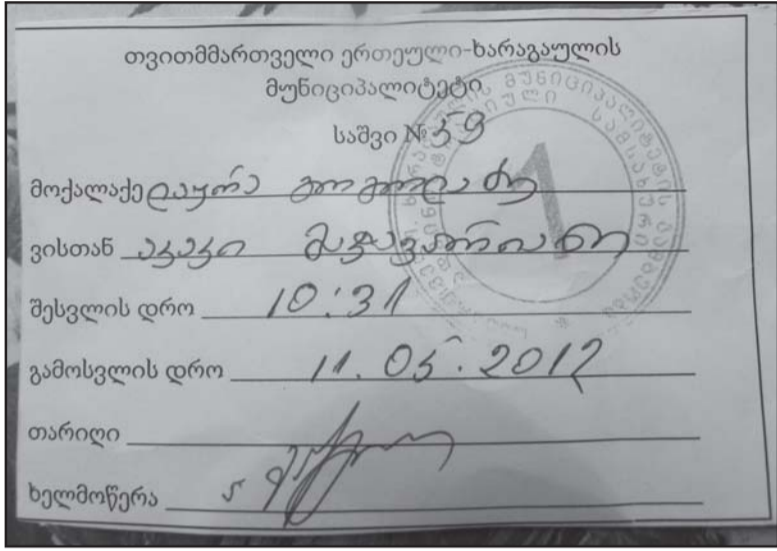 თვითმმართველი ერთეული-ხარაგაულის
მუნიციპალიტეტი
საშვი № 59
მოქალაქე ლაურა გოგოლაძე
ვისთან აკაკი მაჭავარიანი
შესვლის დრო 10:31
გამოსვლის დრო 11.05.2012
თარიღი
ხელმოწერა
1